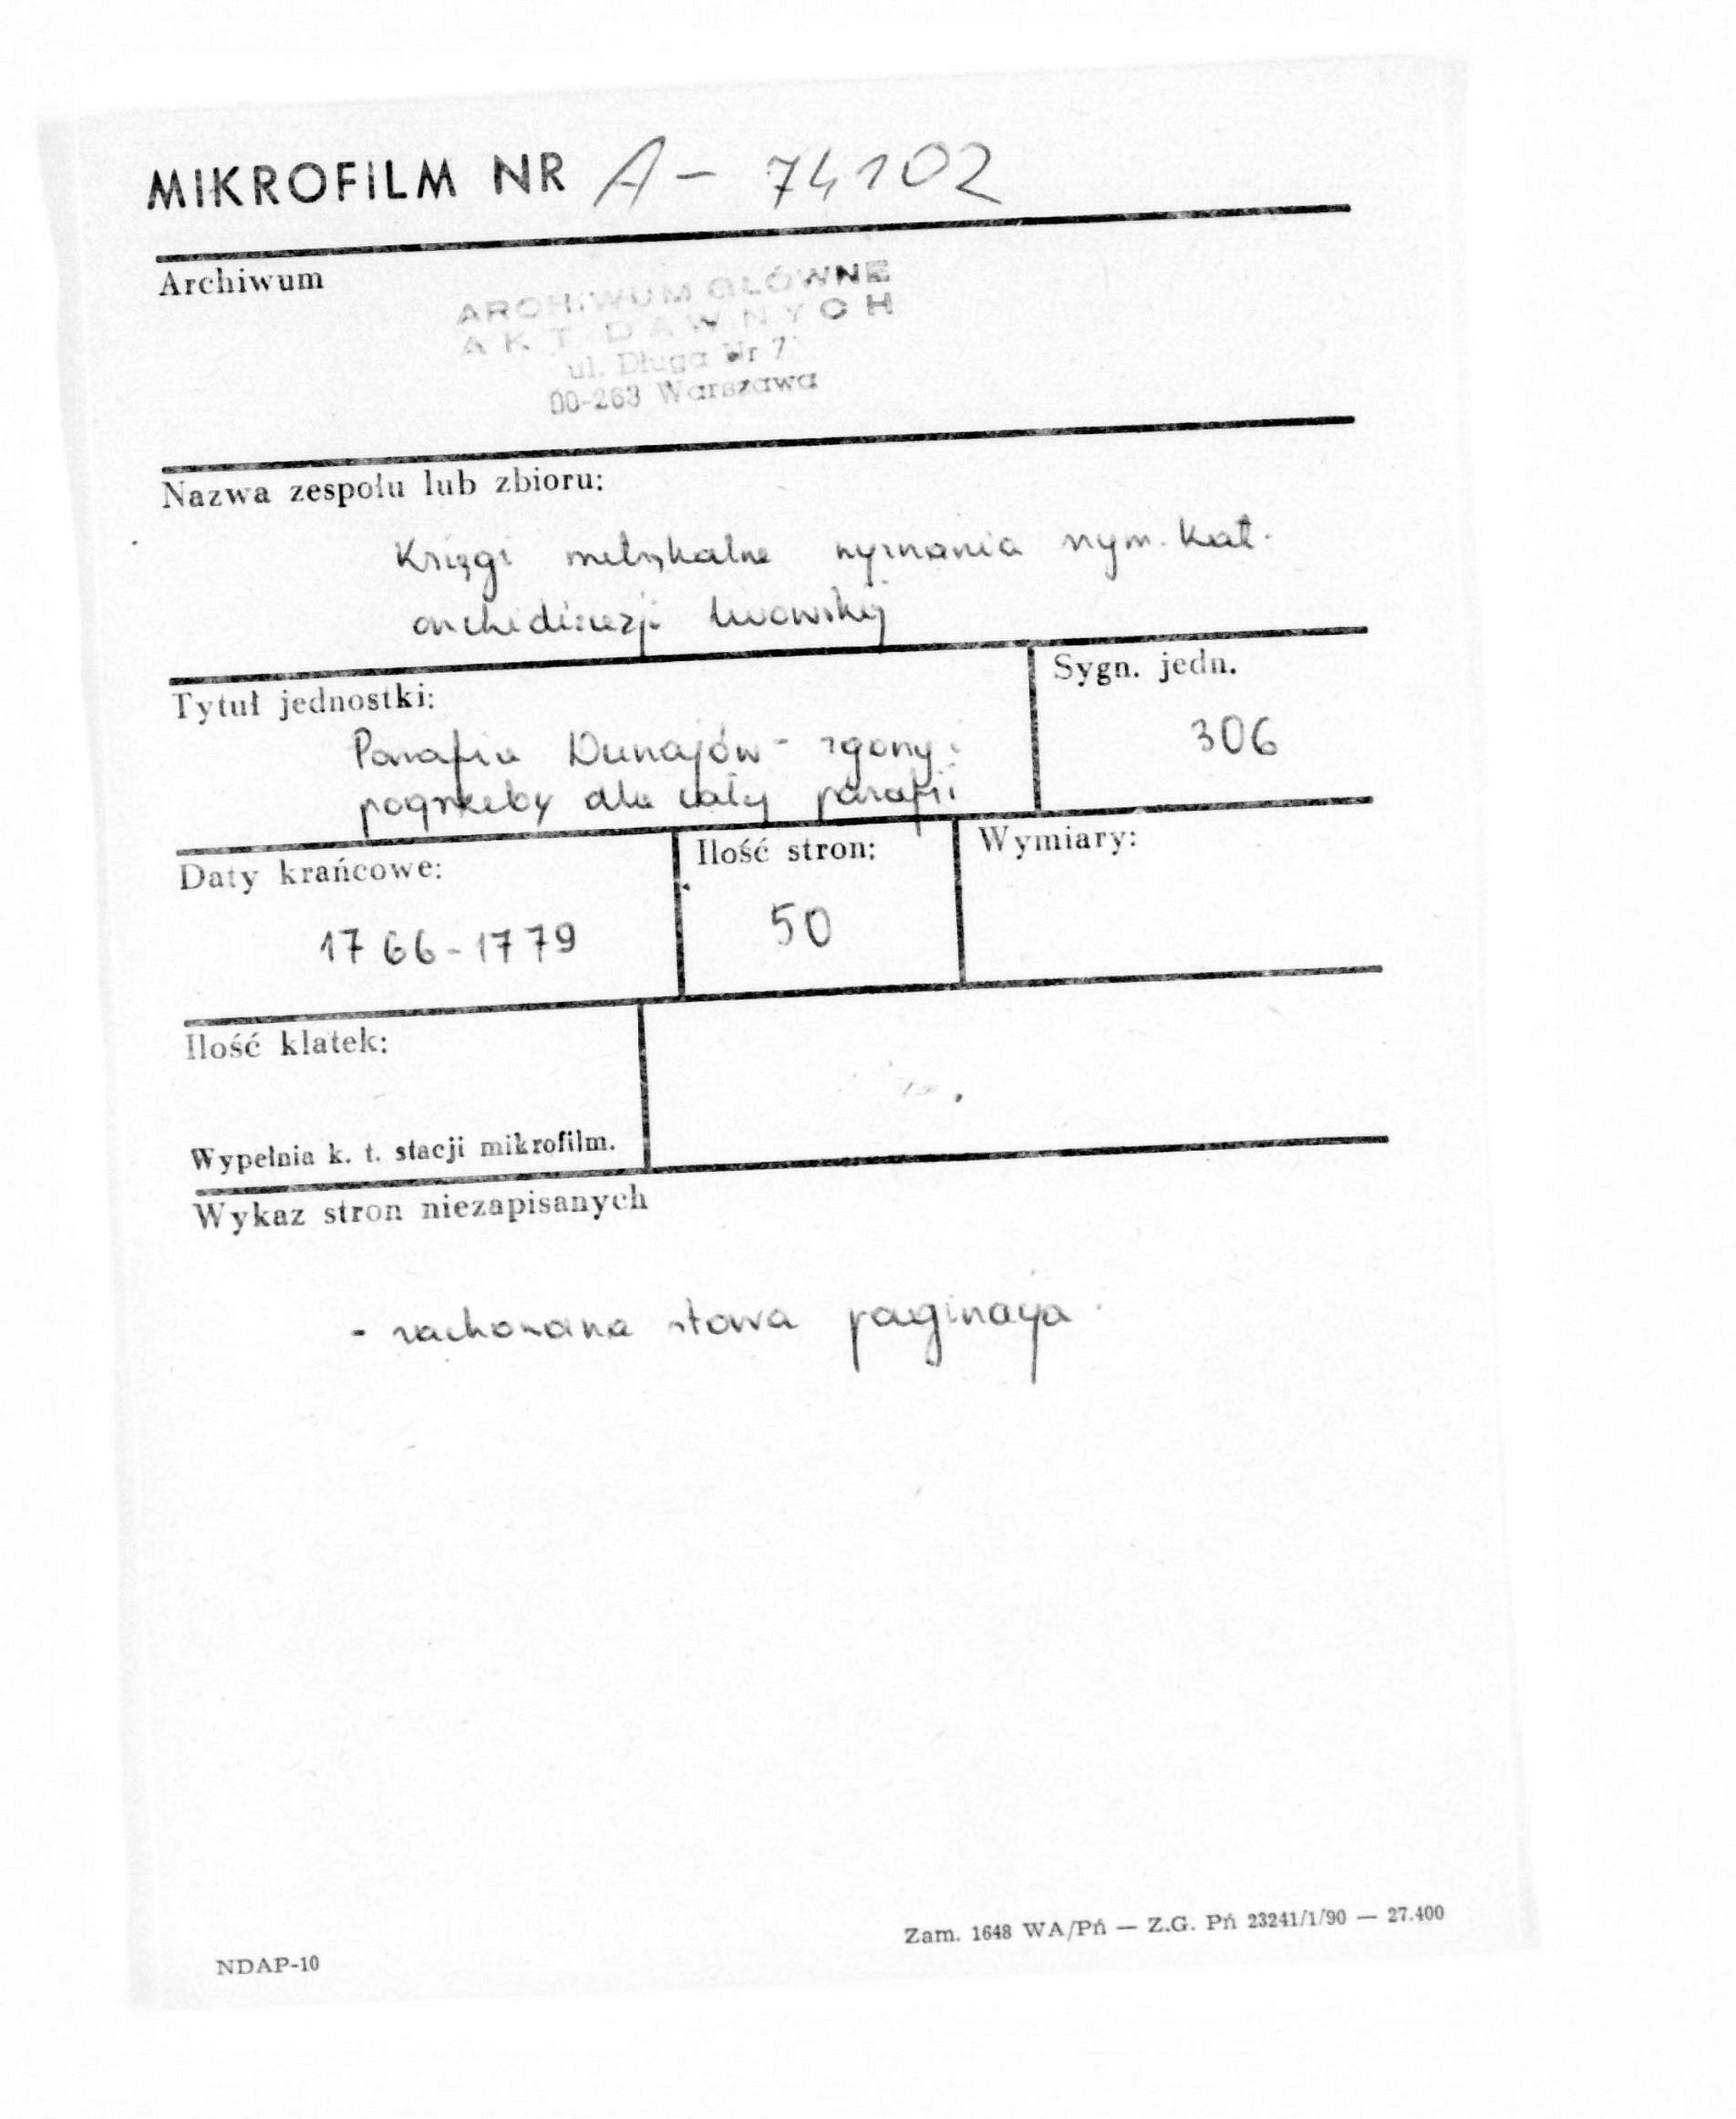 MIKROFILM NR A - 74102
Archiwum
ARCHIWUM GŁÓWNE
AKT DAWNYCH
ul. Długa Nr 7
00-263 Warszawa
Nazwa zespołu lub zbioru:
Księgi metrykalne wyznania rzym. kat.
archidiecezji lwowskiej
Tytuł jednostki:
Sygn. jedn.
Parafia Dunajów - zgony i
306
pogrzeby dla całej parafii
Daty krańcowe:
Ilość stron:
Wymiary:
1766-1779
50
Ilość klatek:
Wypełnia k. t. stacji mikrofilm.
Wykaz stron niezapisanych
- zachowana stara paginacja.
Zam. 1648 WA/Pń — Z.G. Pń 23241/1/90 — 27.400
NDAP-10